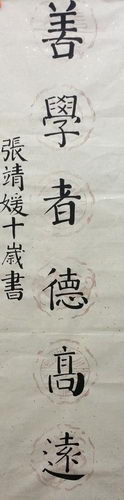 善學者德高遠
張靖媛十歲書